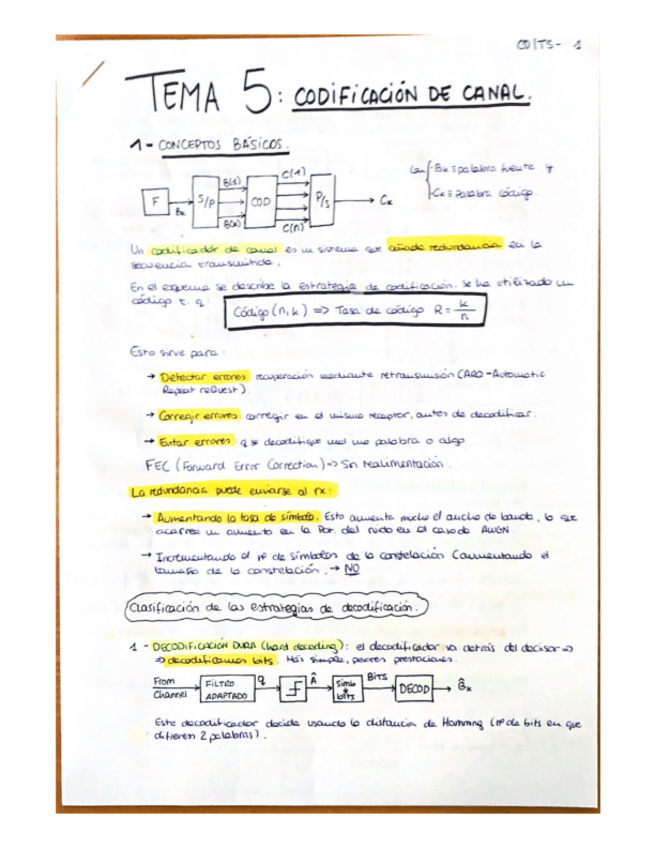 CDITS- 1
TEMA 5: CODIFICACIÓN DE CANAL.
1- CONCEPTOS BÁSICOS.
F Bk S/P B(1) B(k) COD C(1) C(n) P/S Ck
Con Bk ≡ palabra fuente y
Ck ≡ Palabra código.
Un codificador de canal es un sistema que añade redundancia en la
secuencia transmitida.
En el esquema se describe la estrategia de codificación. Se ha utilizado un
código t. q:
Código (n,k) => Tasa de código R = k/n
Esto sirve para:
→ Detectar errores: recuperación mediante retransmisión (ARQ-Automatic
Repeat reQuest).
→ Corregir errores: corregir en el mismo receptor, antes de decodificar.
→ Evitar errores: q se decodifique mal una palabra o algo
FEC (Forward Error Correction) => Sin realimentación.
La redundancia puede enviarse al rx:
→ Aumentando la tasa de símbolo. Esto aumenta mucho el ancho de banda, lo que
acarrea un aumento en la Pot. del ruido en el caso de AWGN.
→ Incrementando el nº de símbolos de la constelación (aumentando el
tamaño de la constelación. → NO
Clasificación de las estrategias de decodificación.
1 - DECODIFICACIÓN DURA (hard decoding): el decodificador va detrás del decisor =>
=> decodificamos bits. Más simple, peores prestaciones.
From Channel FILTRO ADAPTADO q Â Simb bits BITS DECOD B̂k
Este decodificador decide usando la distancia de Hamming (nº de bits en que
difieren 2 palabras).